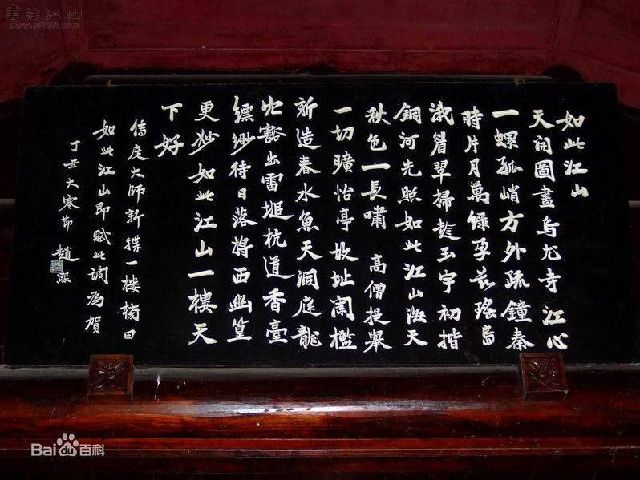 如此江山
天開圖畫烏尤寺 江心
一螺孤峭方外疏鐘秦
時片月萬綠孕茲瑤島
翠掃趁玉宇初揩
銅河先照如此江山際天
秋色一長嘯 高僧提舉
一切曠怡亭故址闌檻
新造春水魚天洞庭龍
豁出雷杭道香臺
縹緲待日落將西幽篁
更妙如此江山一樓天
下好
傳度大師新搆一樓榜曰
如此江山即賦此調為賀
大寒節 趙熙
Bai百科